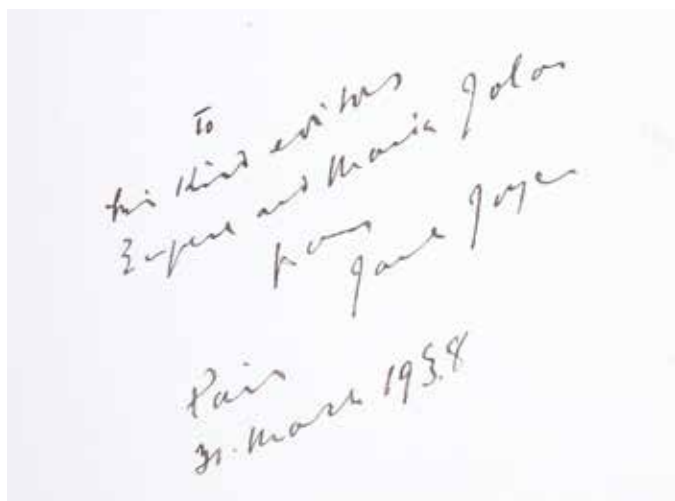 To
his kind editors
Eugene and Maria Jolas
from
James Joyce
Paris
31. March 1938